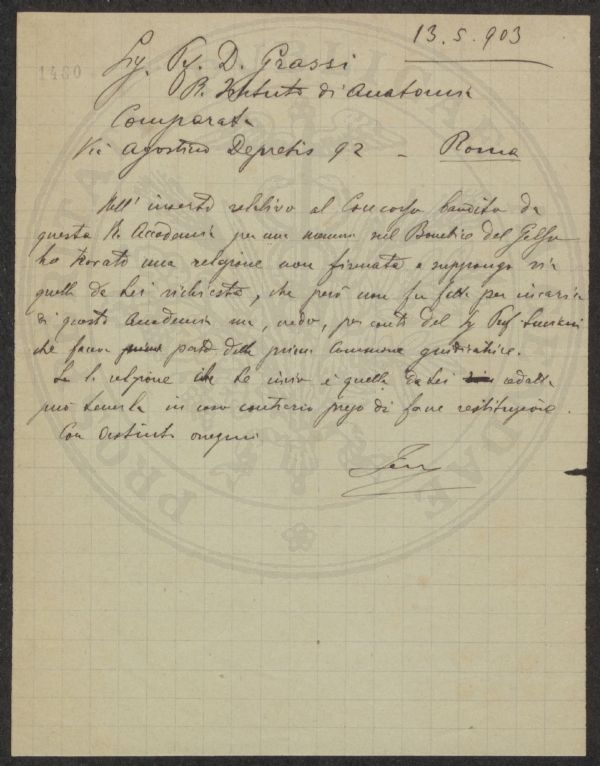 13. 5. 903
1480
Sig. Pf. D. Grassi
R. Istituto di Anatomia
Comparata
Via Agostino Depretis 92 - Roma
Nell' inserto relativo al Concorso bandito da
questa R. Accademia per una memoria sul del Golfo
ho trovato una relazione non firmata e suppongo sia
quella da Lei richiesta, che però non fu fatta per incarico
di questa Accademia ma, credo, per conto del Sg Prof Luciani
che faceva parte della prima Commissione giudicatrice.
Se la relazione che Le invio è quella da Lei
può tenerla in caso contrario prego di farne restituzione.
Con distinti ossequi